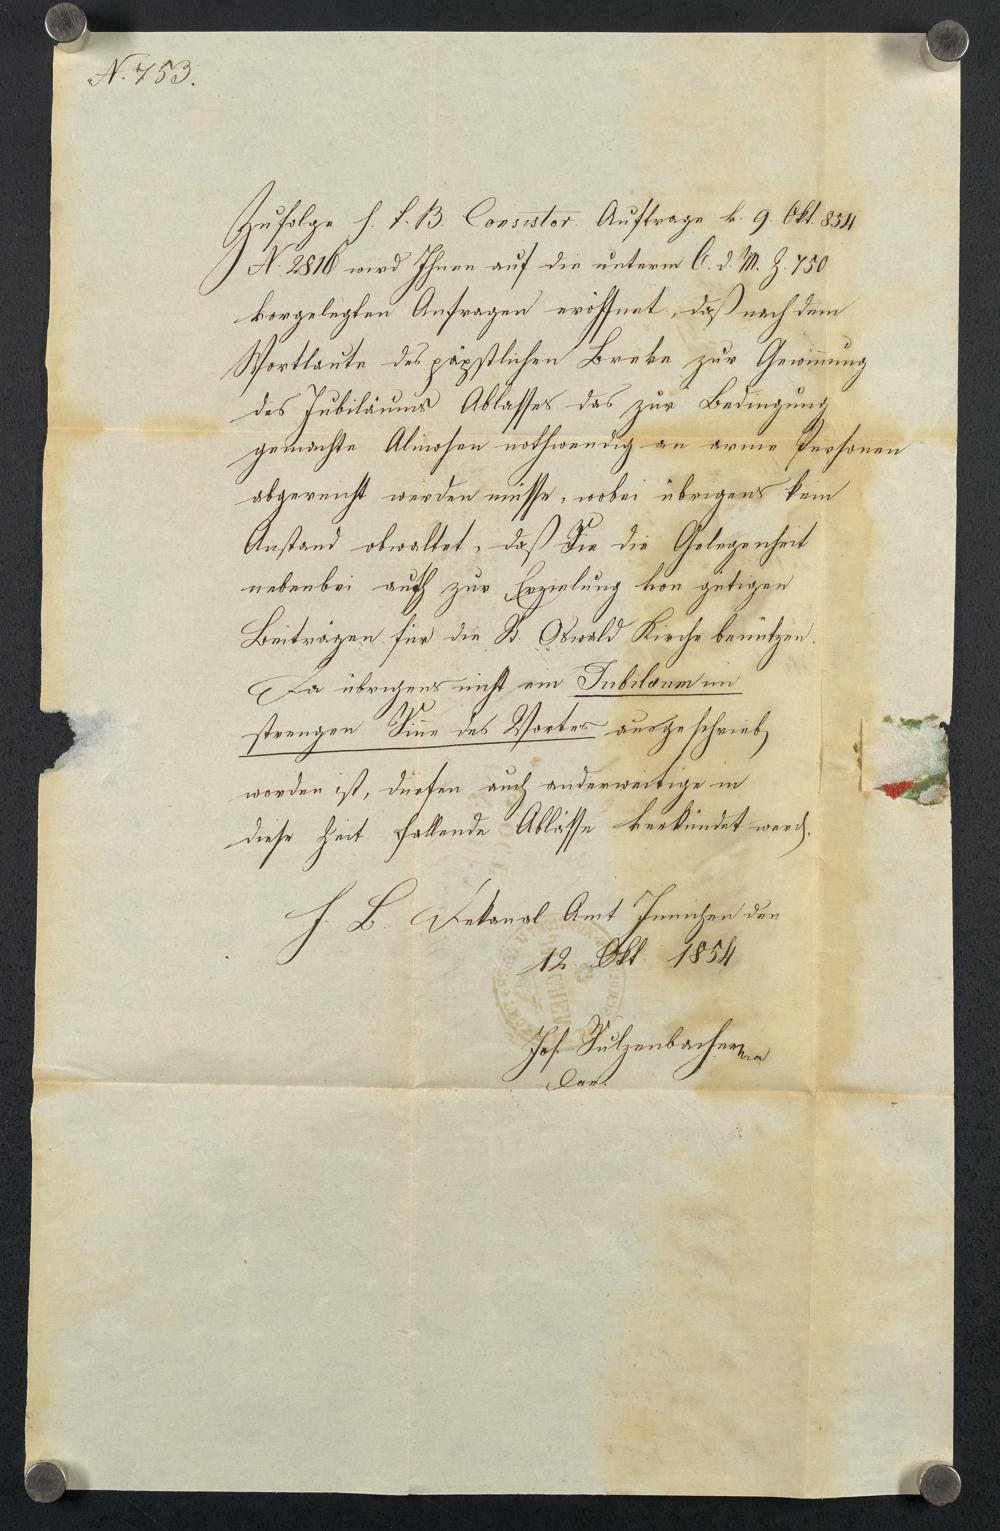 N. 753.
Zufolge h. f. B. Consistor. Auftrage v. 9. Okt. 854
N. 2816 wird Ihnen auf die unterm 6. d. M. Z. 750
vorgelegten Anfragen eröffnet, daß nach dem
Wortlaute des päpstlichen Breve zur Gewinnung
des Jubiläums Ablasses das zur Bedingung
gemachte Almosen nothwendig an arme Personen
abgereicht werden müsse, wobei übrigens kein
Anstand obwaltet, daß Sie die Gelegenheit
nebenbei auch zur Erzielung von gütigen
Beiträgen für die St. Oswald Kirche benützen.
Da übrigens nicht ein Jubiläum im
strengen Sinne des Wortes ausgeschrieb
worden ist, dürfen auch anderweitige in
diese Zeit fallende Ablässe verkündet werd.
F. B. Dekanal Amt Innichen den
12. Okt. 1854
Jos. Sulzenbacher
INNICHEN